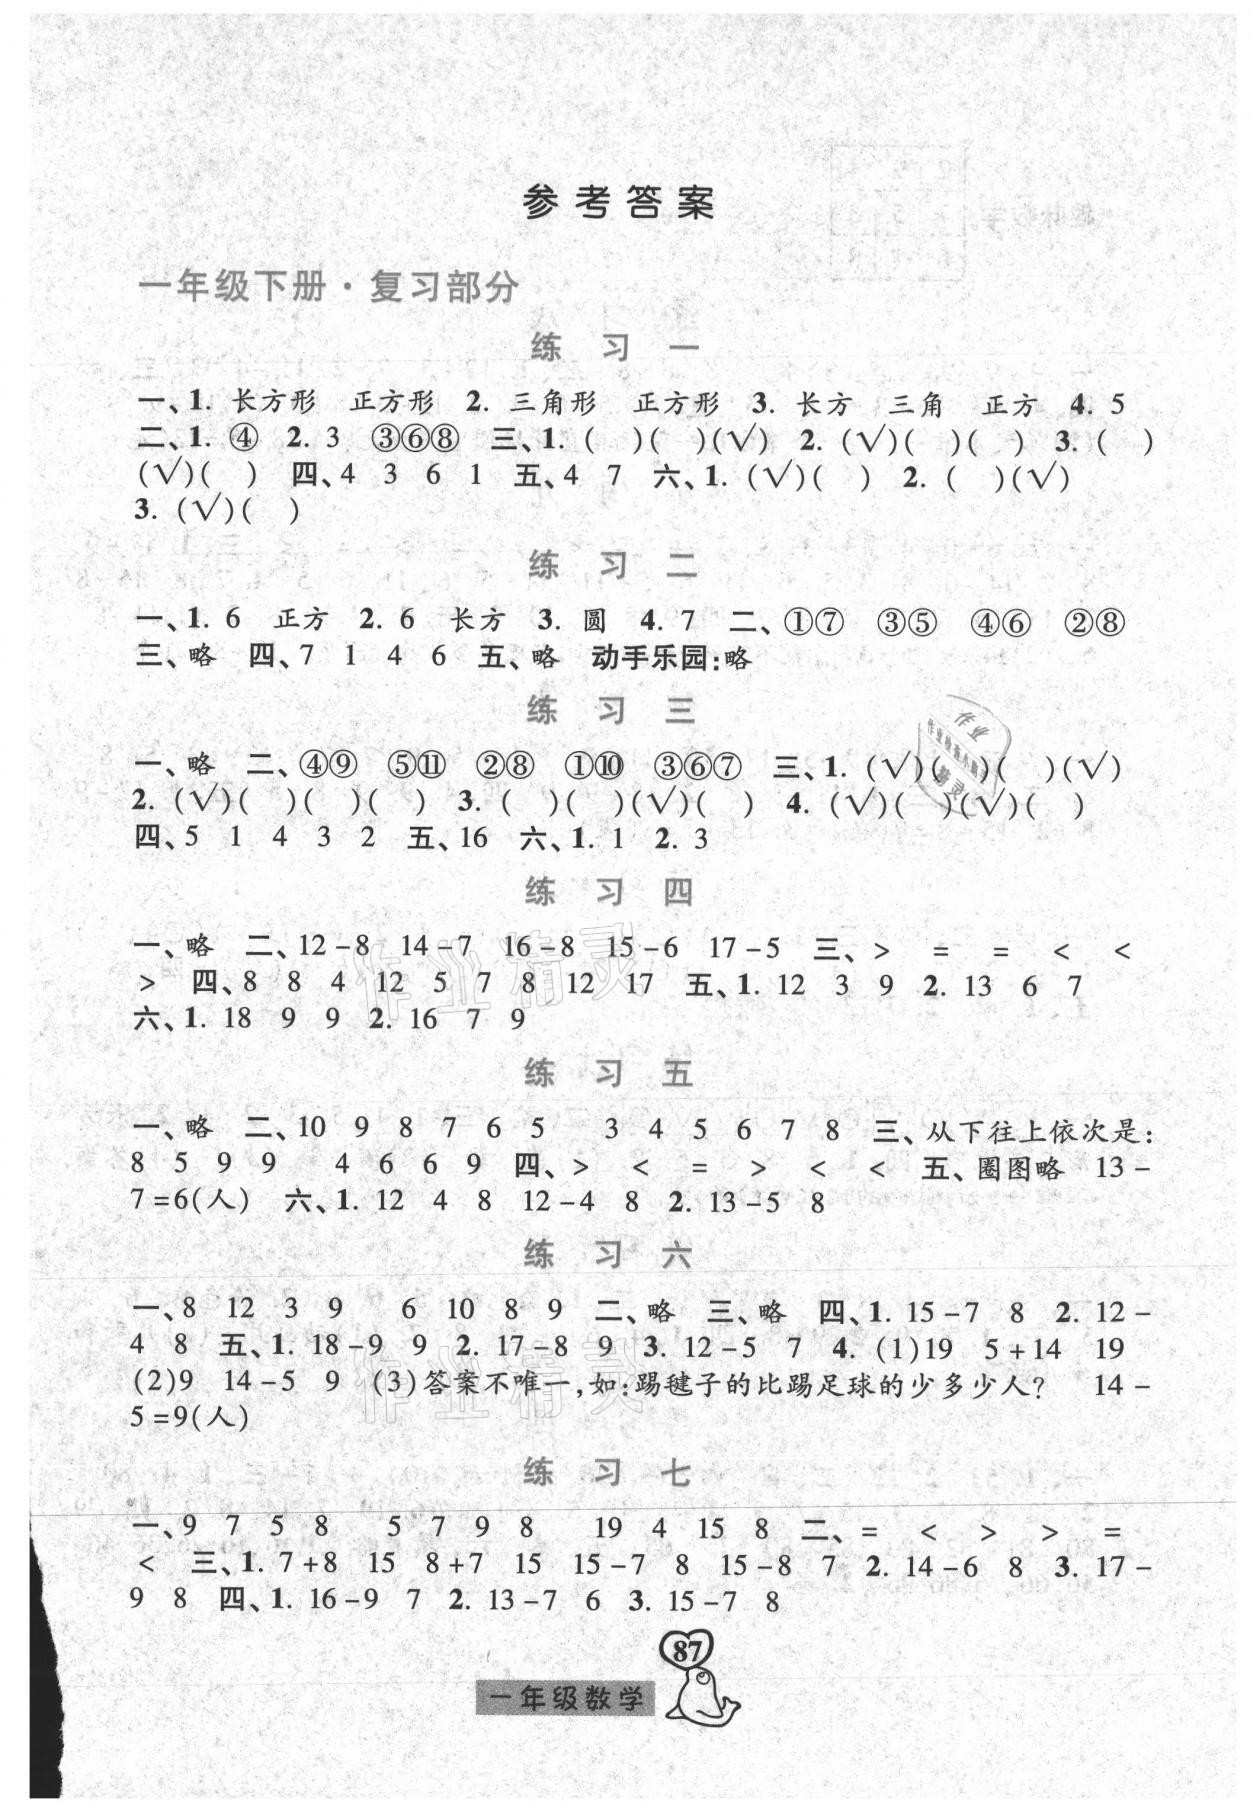 参考答案
一年级下册·复习部分
练 习 一
一、1. 长方形 正方形 2. 三角形 正方形 3. 长方 三角 正方 4. 5
二、1. ④ 2. 3 ③⑥⑧ 三、1. ( )( )(√) 2. (√)( )( ) 3. ( )
(√)( ) 四、4 3 6 1 五、4 7 六、1. (√)( ) 2. ( )(√)
3. (√)( )
练 习 二
一、1. 6 正方 2. 6 长方 3. 圆 4. 7 二、①⑦ ③⑤ ④⑥ ②⑧
三、略 四、7 1 4 6 五、略 动手乐园:略
练 习 三
一、略 二、④⑨ ⑤⑪ ②⑧ ①⑩ ③⑥⑦ 三、1. (√)( )( )(√)
2. (√)( )( )( ) 3. ( )( )(√)( ) 4. (√)( )(√)( )
四、5 1 4 3 2 五、16 六、1. 1 2. 3
练 习 四
一、略 二、12-8 14-7 16-8 15-6 17-5 三、> = = < <
> 四、8 8 4 12 5 7 8 12 17 五、1. 12 3 9 2. 13 6 7
六、1. 18 9 9 2. 16 7 9
练 习 五
一、略 二、10 9 8 7 6 5 3 4 5 6 7 8 三、从下往上依次是:
8 5 9 9 4 6 6 9 四、> < = > < < 五、圈图略 13-
7=6(人) 六、1. 12 4 8 12-4 8 2. 13-5 8
练 习 六
一、8 12 3 9 6 10 8 9 二、略 三、略 四、1. 15-7 8 2. 12-
4 8 五、1. 18-9 9 2. 17-8 9 3. 12-5 7 4. (1)19 5+14 19
(2)9 14-5 9 (3)答案不唯一,如:踢毽子的比踢足球的少多少人? 14-
5=9(人)
练 习 七
一、9 7 5 8 5 7 9 8 19 4 15 8 二、= < > > =
< 三、1. 7+8 15 8+7 15 15-7 8 15-8 7 2. 14-6 8 3. 17-
9 8 四、1. 16-9 7 2. 13-7 6 3. 15-7 8
87
一年级数学
作业精灵
作业精灵